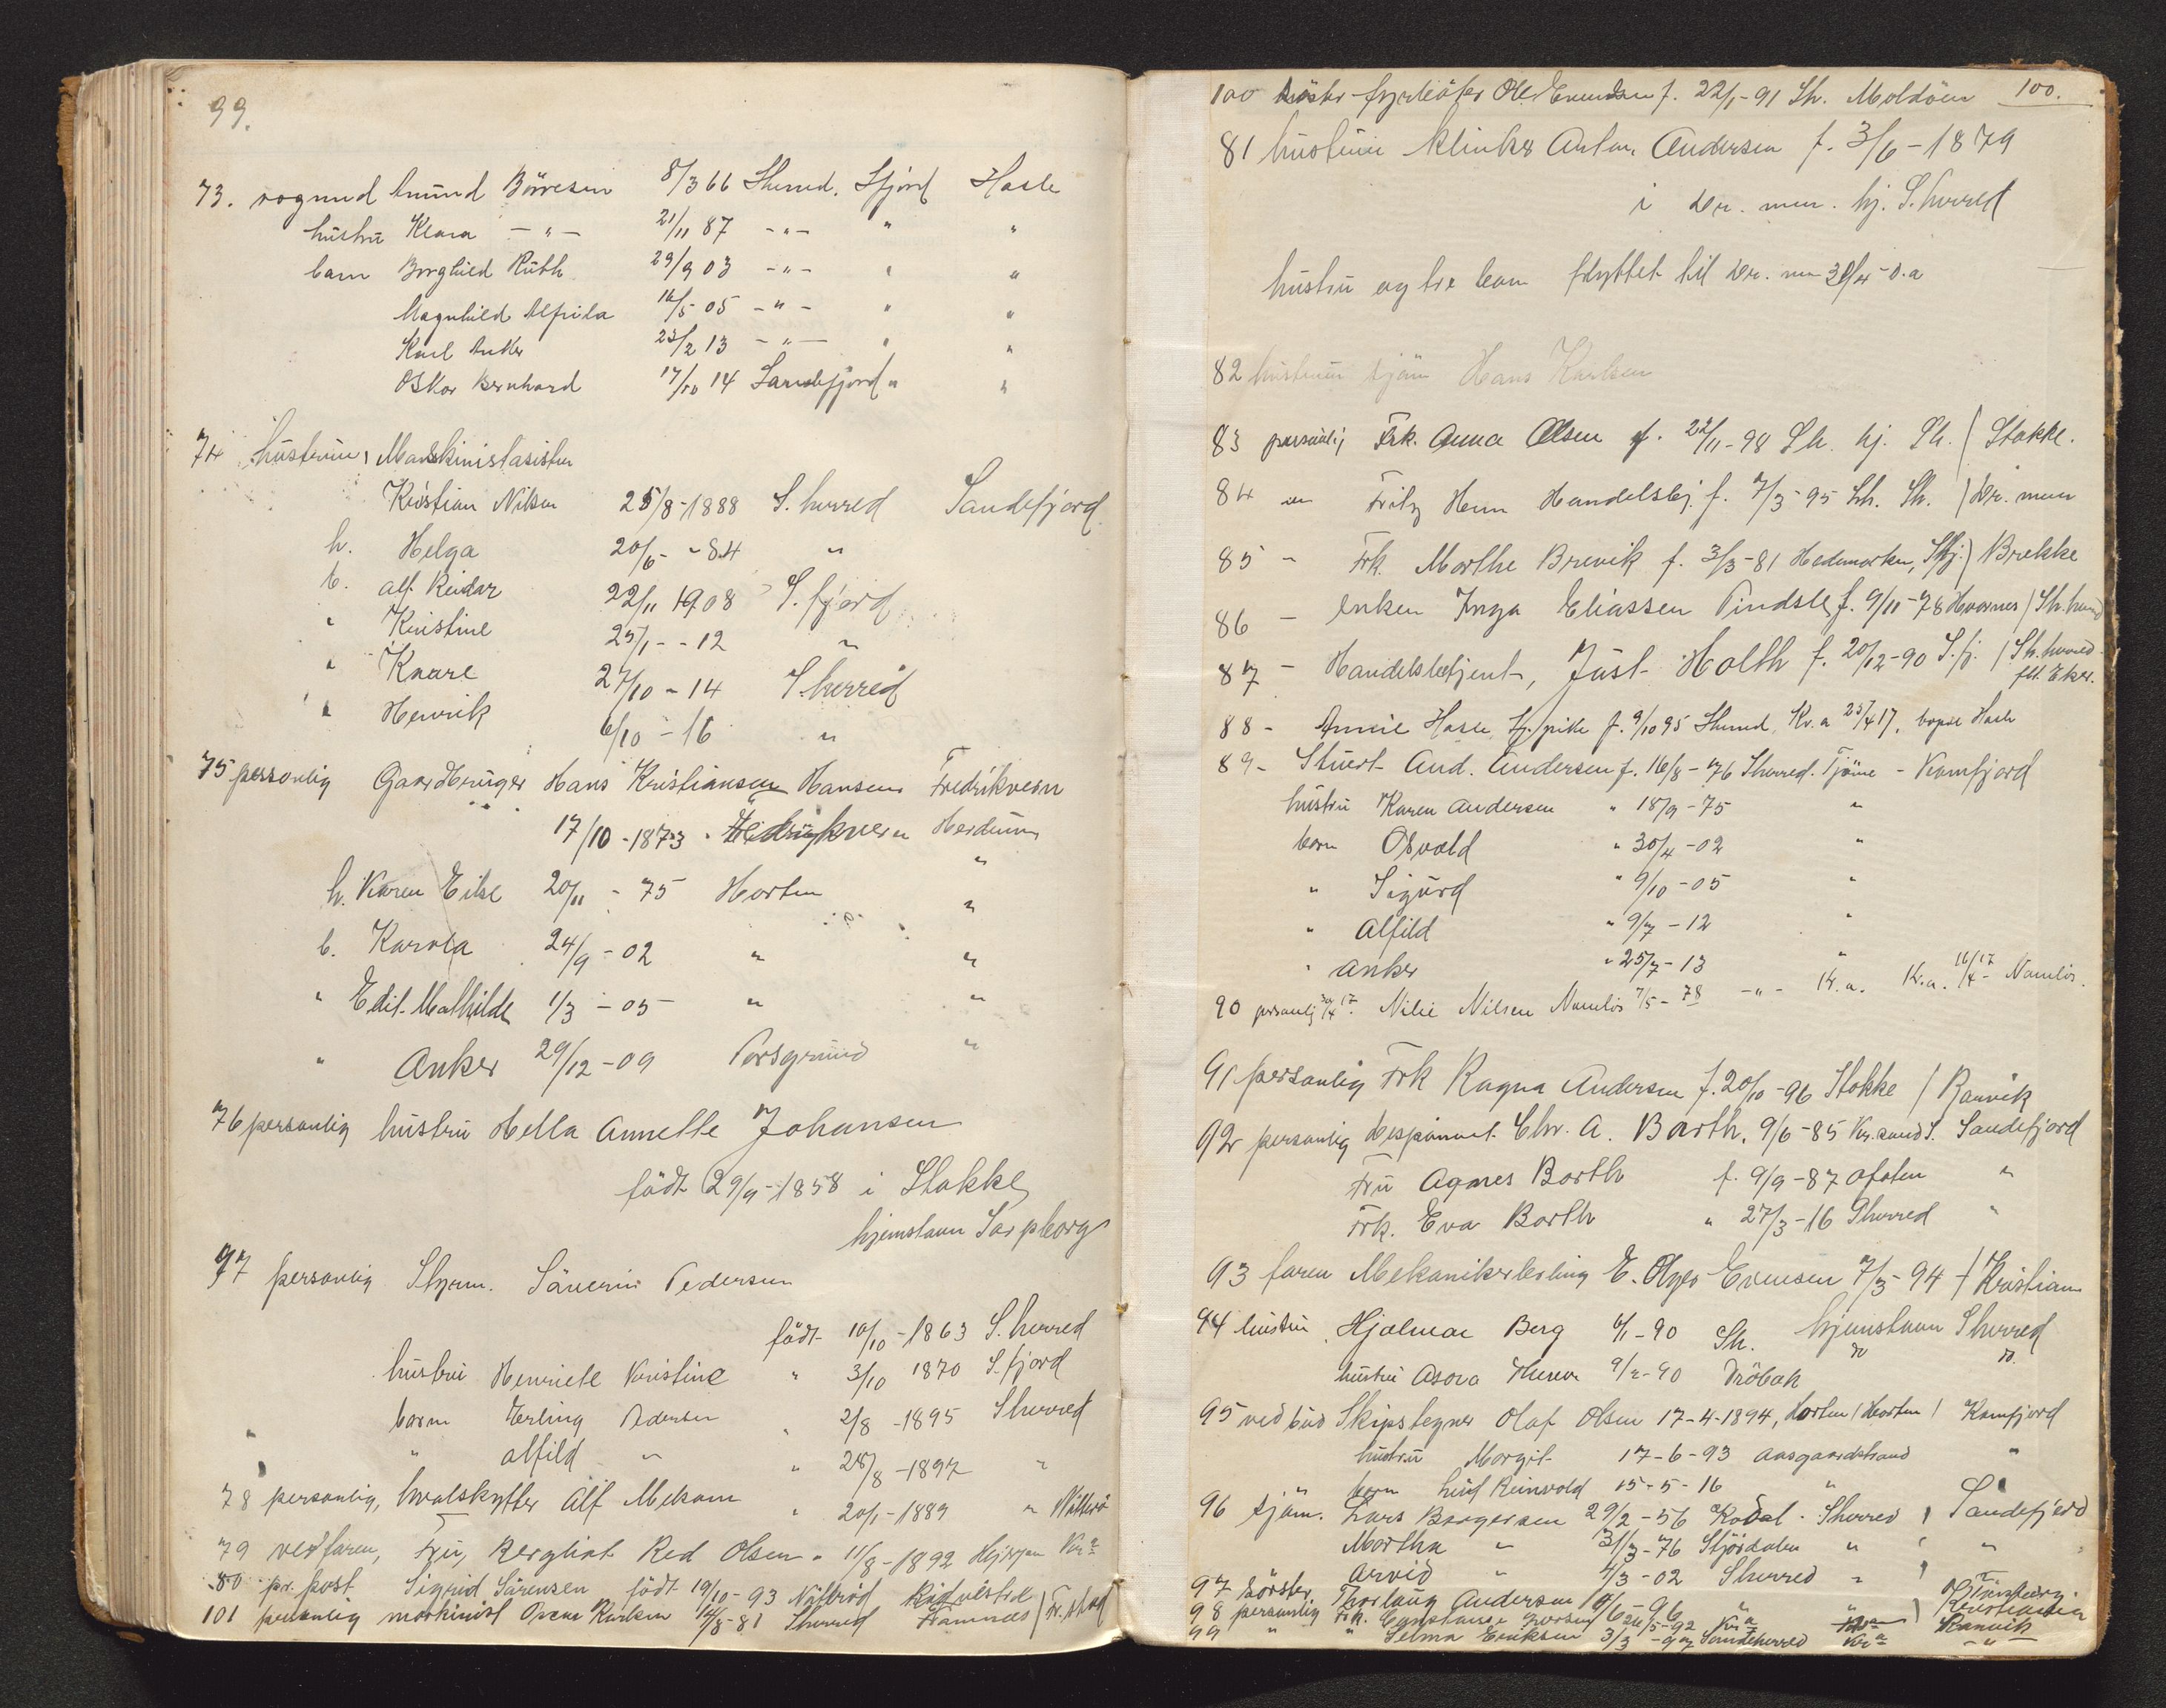 99.
73. rognmd Børresen 8/3 66 Sherred. Sfjord Hasle
hustru Klara - " - 21/11 87 - " - " "
barn Borghild Ruth 29/9 03 - " - " "
Magnhild Alfrida 16/5 05 - " - " "
Karl Anker 23/2 13 - " - " "
Oskar Bernhard 17/10 14 Sandefjord " "
74 hustruen, Maskinistasisten
Kristian Nilsen 25/8-1888 S. herred Sandefjord
h. Helga 20/6 - 84 "
b. Alf Reidar 22/11 1908 S. fjord
" Kristine 25/1 - - 12 "
" Kaare 27/10 - 14 S. herred
" Henrik 6/10 - 16 "
75 personlig Gaardbruger Hans Kristiansen Hansen Fredriksvern
17/10 - 1873 Hedrum
h. Karen Elise 20/11 - 75 Horten "
b. Karola 24/9 - 02 " "
" Edit Mathilde 1/3 - 05 " "
" Anker 29/12 - 09 Porsgrund "
76 personlig hustru Hella Annette Johansen
född 29/9-1858 i Stokke
hjemstavn Sarpborg
77 personlig Styrm. Säverin Pedersen
född 10/10 - 1863 S. herred
hustru Henriete Kristine " 3/10 1870 S. fjord
barn Erling Pedersen " 2/8 - 1895 Sherred
" Alfild " " 28/8 - 1897 "
78 personlig, hvalskytter Alf Mekom " 20/1-1889 " Nötterö
79 ved faren, Fru, Bergliot Red Olsen " 11/8-1892 Kr a
80 pr. post Sigrid Sörensen född 19/10 - 93 Nötteröd
101 personlig maskinist Oscar Karlsen 14/8-81 Sherred Framnæs / Fr.stad
100 Ole Evensen f. 22/1-91 Sh. Moldöen 100.
81 hustruen klinker Anton Andersen f. 3/6-1879
i Dr. men. hj. S. herred
hustru og tre barn flyttet til Dr. men 30/4 - d.a
82 hustruen sjöm Hans Karlsen
83 personlig Frk. Anna Olsen f. 22/11-98 Sh. hj. Sh. ( Stokke.
84 " Fritz Henn Handelsbj. f. 7/3-95 Sh. Sh. ) Dr. men
85 " Frk. Marthe Brevik f. 3/3-81 Hedemarken, Sfj. ) Brekke
86 - enken Inga Eliassen Pindsle f. 9/11-78 Kvarnes / Sh. herred
87 - Handelsbetjent, Just Holth f. 20/12-90 S.fj. / Sh. herred
fl. Eker.
88 - Annie Hasle, tj. pike f. 9/10 95 Sherred. Kr.a 25/4 17. bopæl Hasle
89 - Stuert And. Andersen f. 16/8-76 Sherred. Tjöme - Kamfjord
hustru Karen Andersen " 18/9-75 "
barn Osvald " 30/4-02 "
" Sigurd " 9/10-05 "
" Alfild " 9/7-12 "
" Anker " 25/7-13 "
90 personlig Nilie Nilsen Namlös 7/5-78 - " - Kr.a. Kr.a. 16/4 17 - Namlös.
91 personlig Frk Ragna Andersen f. 20/10-96 Stokke / Ranvik
92 personlig Chr. A. Barth. 9/6-85 Kr.sand S. Sandefjord
Fru Agnes Barth f. 9/9-87 Ofoten "
Frk. Eva Barth " 27/3-16 Sherred "
93 faren Mekanikerlerling E. Olger Evensen 7/3-94 / Kristian
94 hustru Hjalmar Berg 6/1-90 Sh. hjemstavn Sherred
hustru 9/2-90 Dröbak do do.
95 ved bud Skipstegner Olaf Olsen 17-4-1894, Horten ( Horten ) Kamfjord
hustru Margit 17-6-93 Aasgaardstrand "
barn Leif Reinvold 15-5-16 " "
96 sjöm. Lars Borgersen 29/2-56 Kodal - Sherred ( Sandefjord
Martha " 31/3-76 Stjördalen " ( "
Arvid " 4/3-02 Sherred " (
97 söster Thorlaug Andersen 10/6-96 " " ) Tönsberg
98 personlig Frk. Constanse 24/5-92 Kr.a Kristiania
99 " " Selma Eriksen 3/3-97 Sandeherred Kr a Ranvik